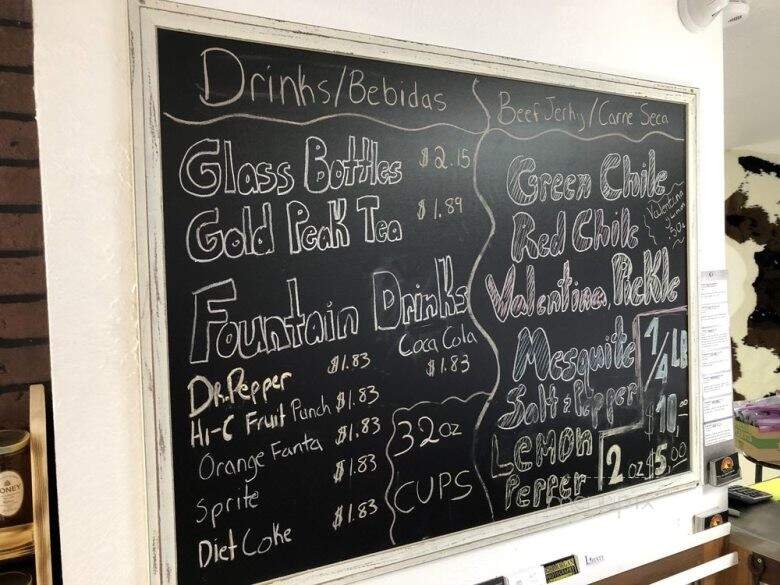 Drinks/Bebidas
Glass Bottles $2.15
Gold Peak Tea $1.89
Fountain Drinks
Dr. Pepper $1.83
Coca Cola $1.83
Hi-C Fruit Punch $1.83
Orange Fanta $1.83
Sprite $1.83
Diet Coke $1.83
32oz
CUPS
Beef Jerky/Carne Seca
Green Chile
Red Chile
Valentina
Valentina, Pickle
Mesquite
Salt & Pepper
LEMON
Pepper
1/4 LB
$10.00
2 oz $5.00